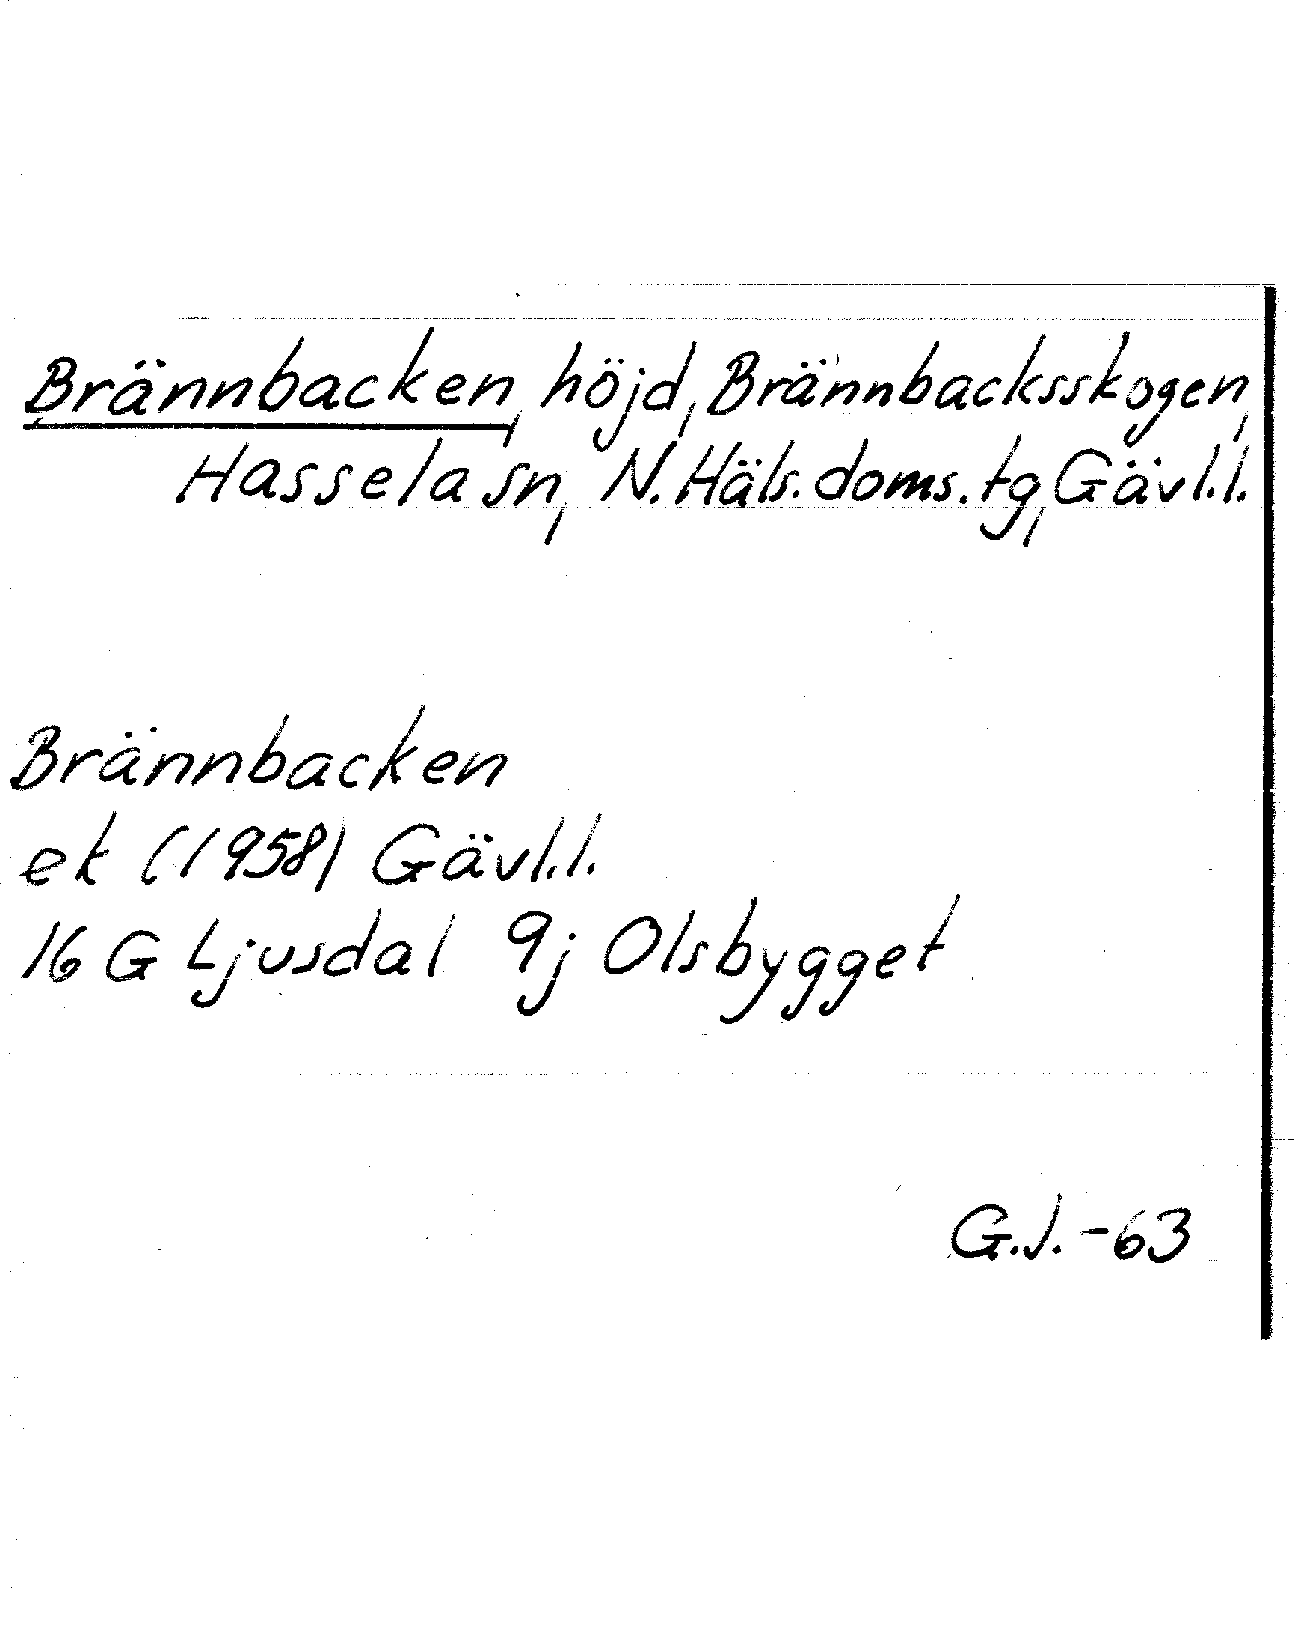 Brännbacken, höjd, Brännbacksskogen,
Hassela sn, N. Häls. doms. tg, Gävl.l.
Brännbacken
ek (1958) Gävl.l.
16 G Ljusdal 9j Olsbygget
G.J. -63